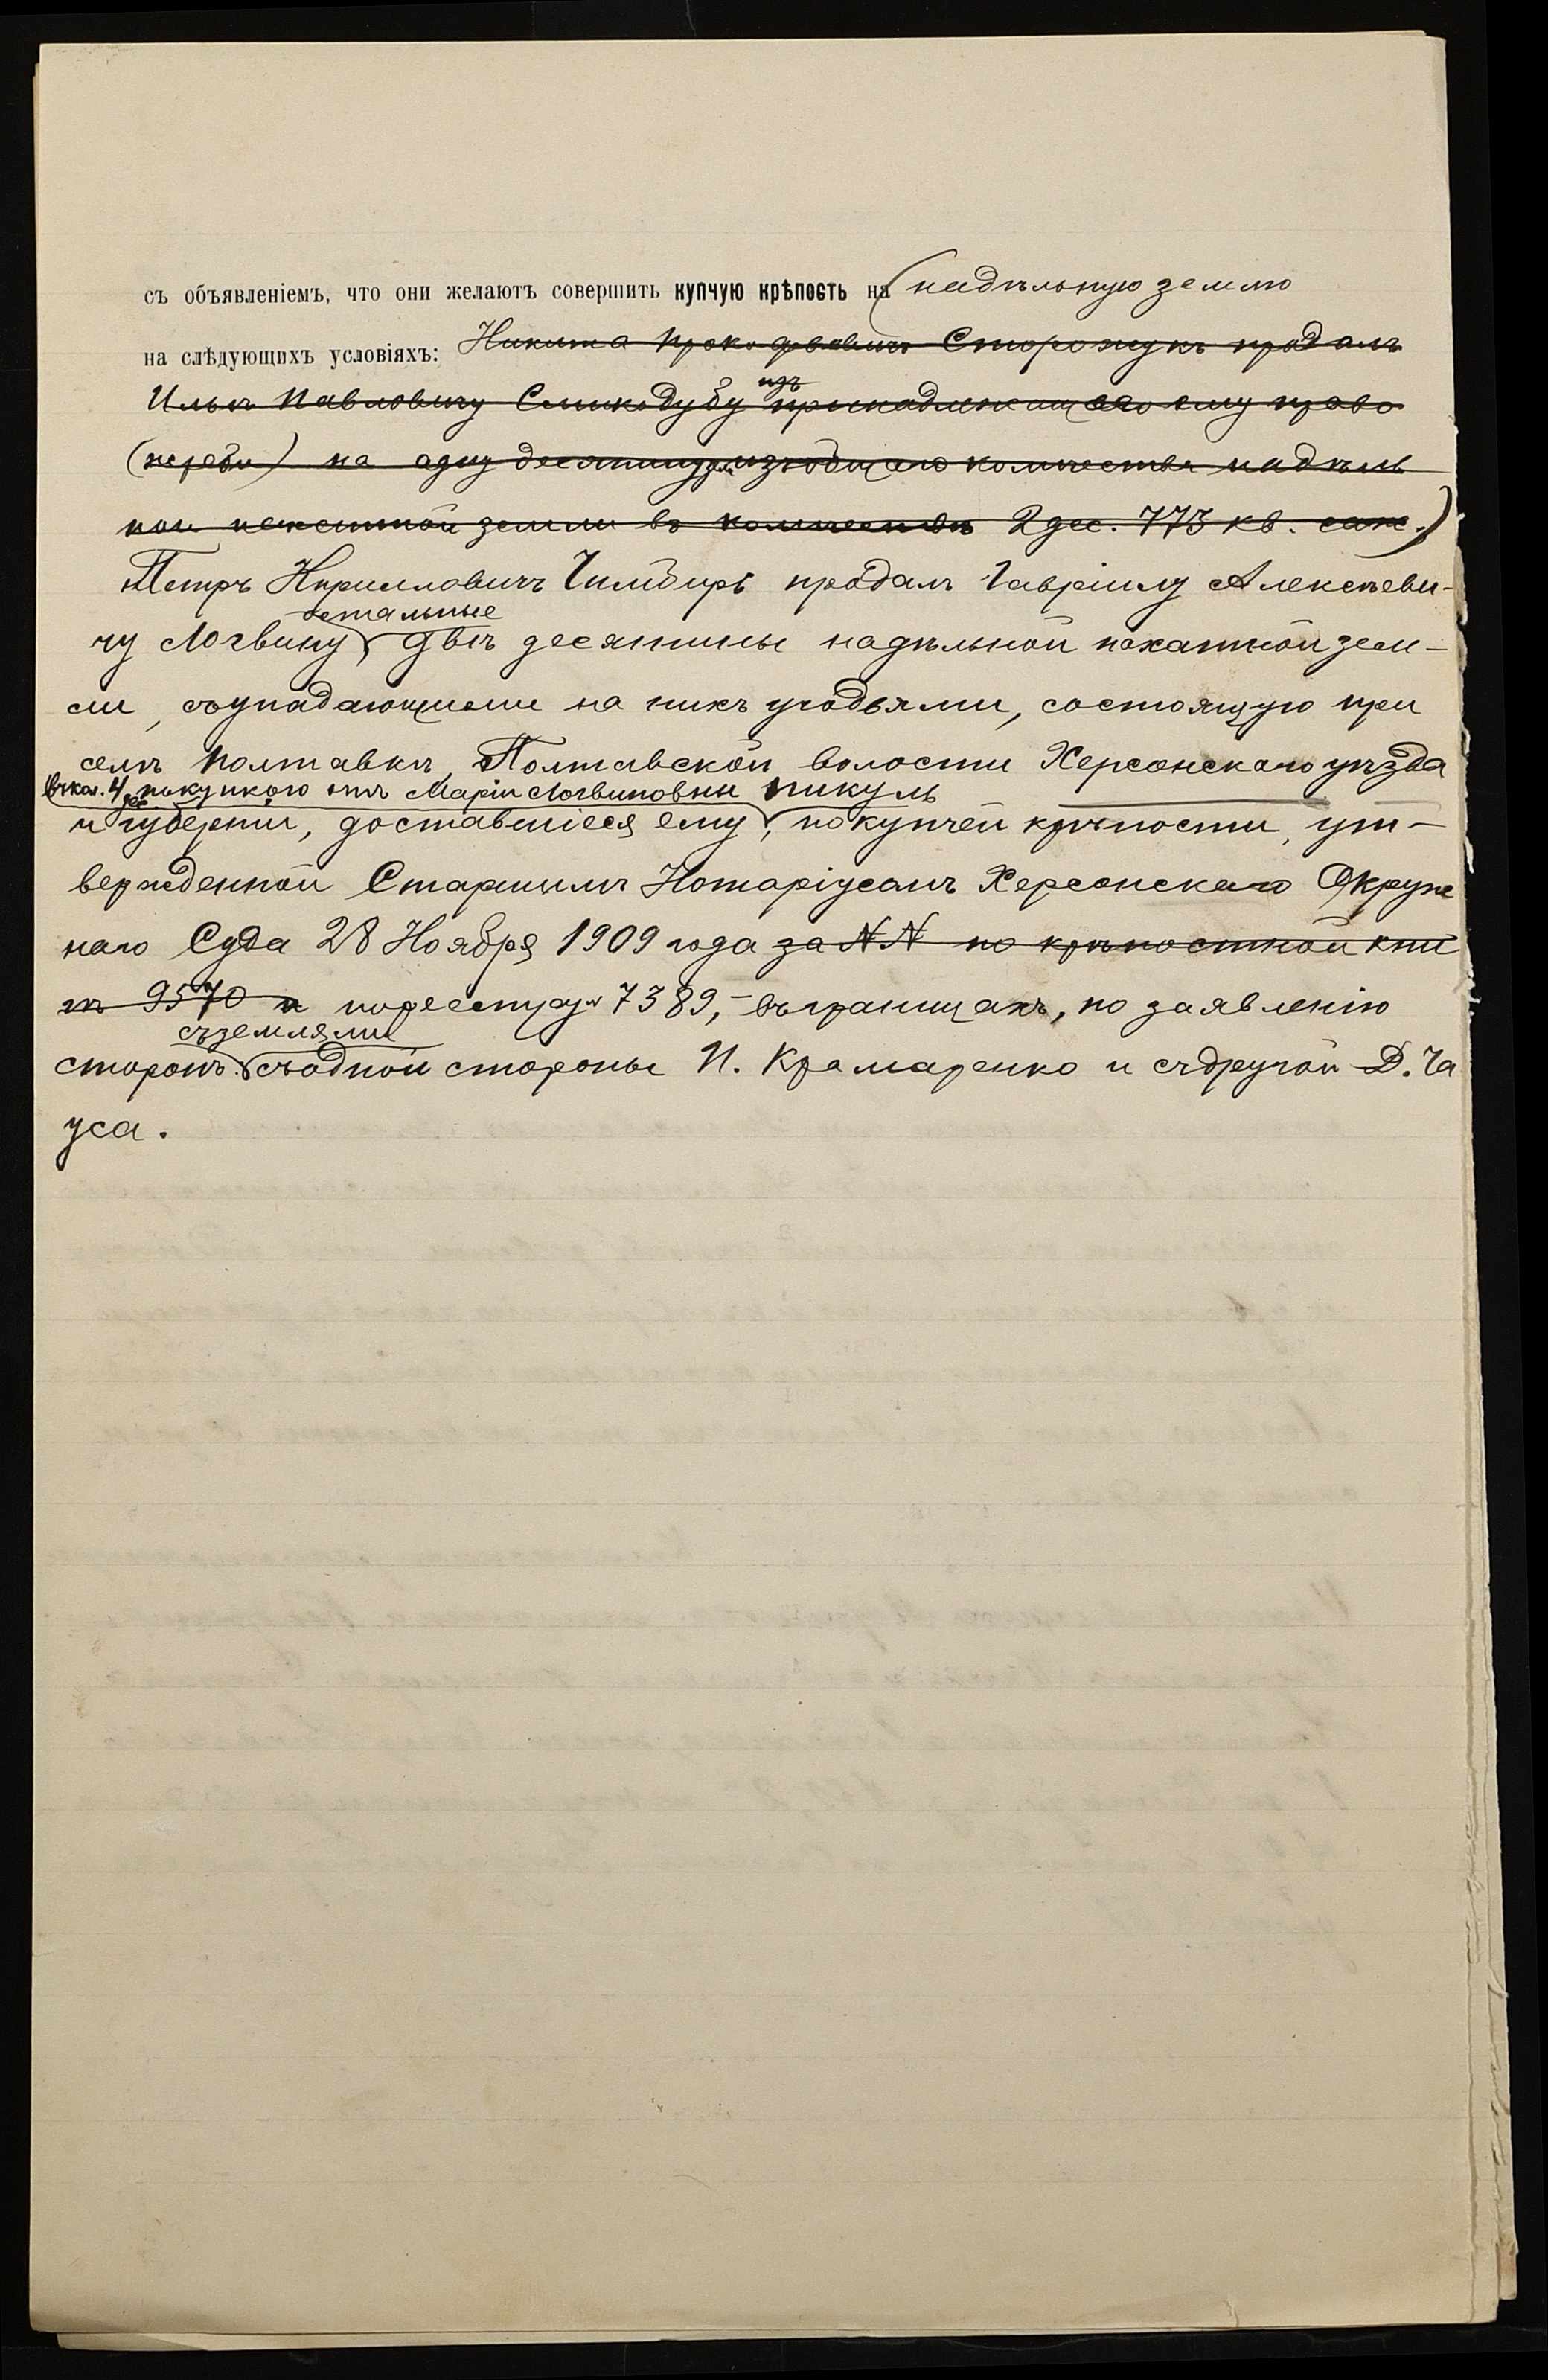 съ объявленіемъ, что они желаютъ совершить купчую крѣпость на (надѣльную землю
на слѣдующихъ условіяхъ: Никита Прокофьевичъ Сторожукъ продалъ
изъ
Ильѣ Павловичу Семикодубу принадлежащаго ему право
(жребіи) на одну десятину изъ общаго количества надѣль
ной земли въ количествѣ 2 дес. 773 кв. саж.)
Петръ Кирилловичъ Чимбиръ продалъ Гавріилу Алексѣеви-
остальные
чу Логвину двѣ десятины надѣльной пахатной зем-
ли, съ упадающими на нихъ угодьями, состоящую при
селѣ Полтавкѣ, Полтавской волости Херсонскаго уѣзда
въ кол. 4 дес. покупкою отъ Маріи Логвиновны Пикуль
и губерніи, доставшіеся ему, по купчей крѣпости, ут-
вержденной Старшимъ Нотаріусомъ Херсонскаго Окруж
наго Суда 28 Ноября 1909 года за NN по крѣпостной кни
гѣ 9570 и по реестру 7389, - въ границахъ, по заявленію
съ землями
сторонъ: съ одной стороны И. Крамаренко и съ другой Д. Ча
уса.